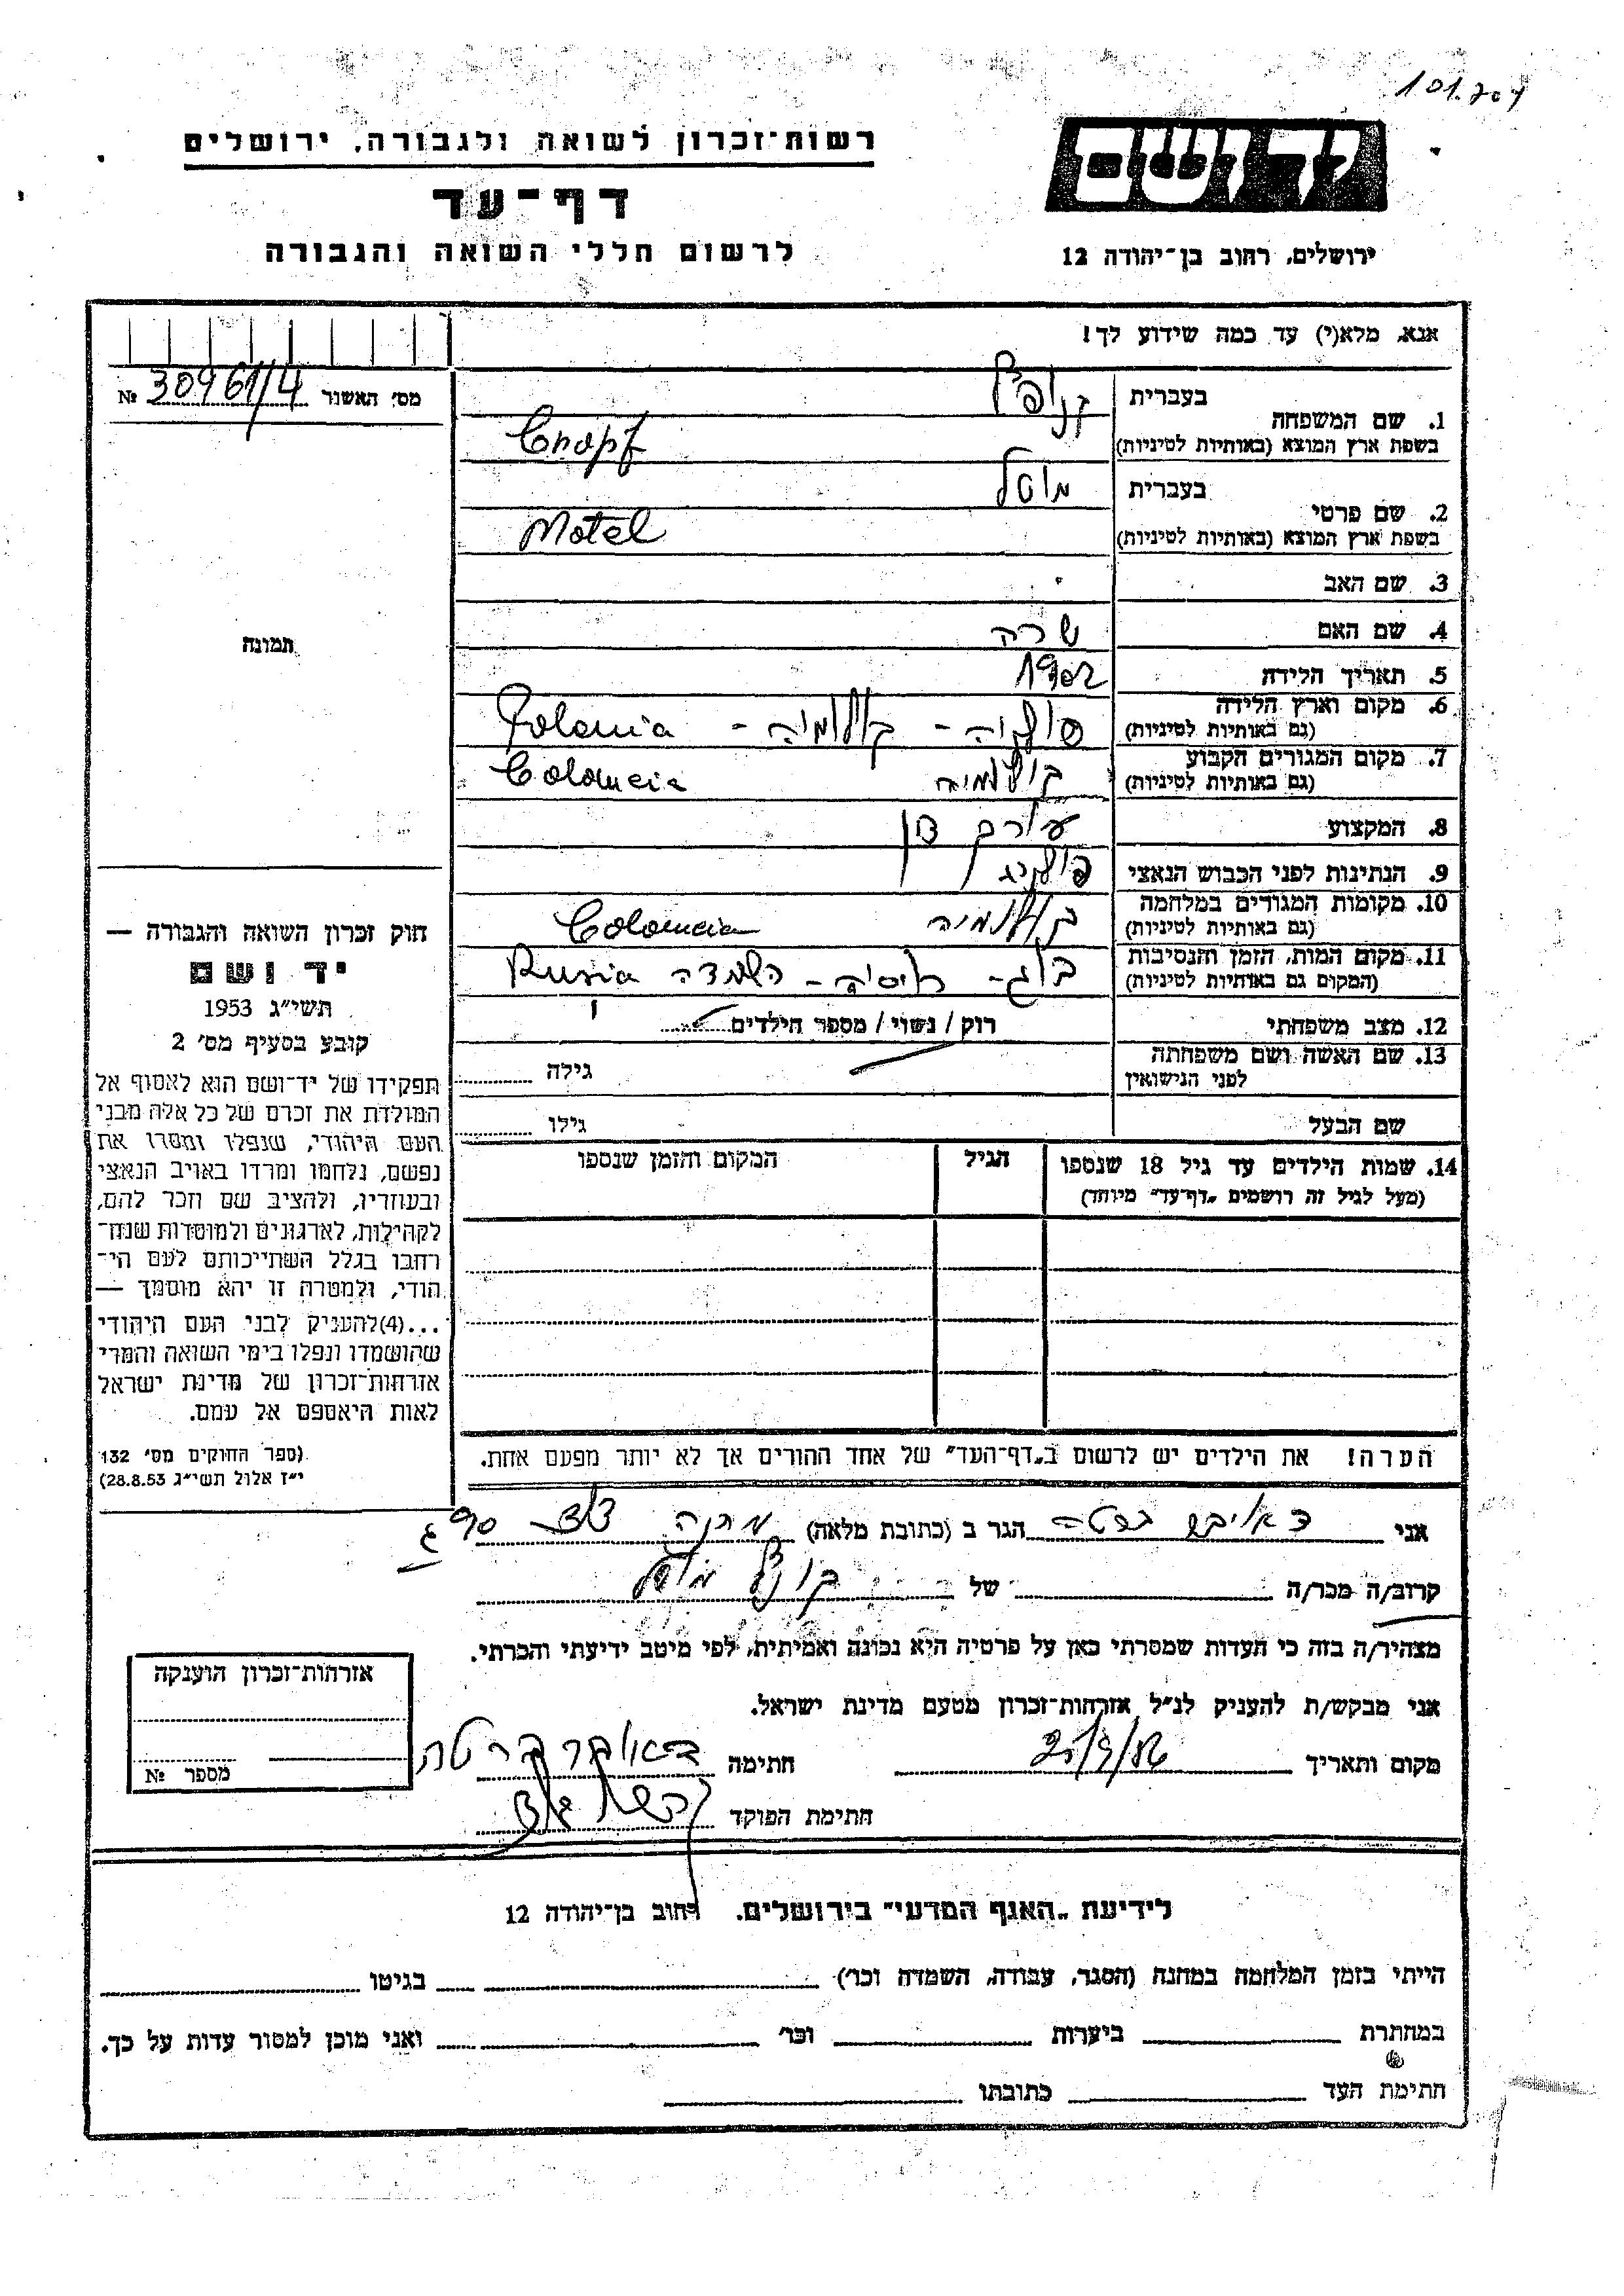 101.207
יד ושם
רשות־זכרון לשואה ולגבורה, ירושלים
דף־עד
לרשום חללי השואה והגבורה
ירושלים, רחוב בן־יהודה 12
אנא, מלא(י) עד כמה שידוע לך!
מס׳ האשנר № 30961/4
תמונה
1. שם המשפחה
בעברית
בשפת ארץ המוצא (באותיות לטיניות) Cnopf
2. שם פרטי
בעברית מוטל
בשפת ארץ המוצא (באותיות לטיניות) Motel
3. שם האב
4. שם האם שרה
5. תאריך הלידה 1902
6. מקום וארץ הלידה פולניה - קולומיה - Polonia
(גם באותיות לטיניות)
7. מקום המגורים הקבוע קולומיה Colomeia
(גם באותיות לטיניות)
8. המקצוע עורך דין
9. הנתינות לפני הכבוש הנאצי
10. מקומות המגורים במלחמה קולומיה Colomeia
(גם באותיות לטיניות)
11. מקום המות, הזמן והנסיבות - רוסיה - השמדה Rusia
(המקום גם באותיות לטיניות)
12. מצב משפחתי רוק / נשוי / מספר הילדים
13. שם האשה ושם משפחתה
לפני הנישואין גילה
שם הבעל גילו
14. שמות הילדים עד גיל 18 שנספו הגיל המקום והזמן שנספו
(מעל לגיל זה רושמים „דף־עד״ מיוחד)
הערה! את הילדים יש לרשום ב„דף־העד״ של אחד ההורים אך לא יותר מפעם אחת.
חוק זכרון השואה והגבורה —
יד ושם
תשי״ג 1953
קובע בסעיף מס׳ 2
תפקידו של יד־ושם הוא לאסוף אל
המולדת את זכרם של כל אלה מבני
העם היהודי, שנפלו ומסרו את
נפשם, נלחמו ומרדו באויב הנאצי
ובעוזריו, ולהציב שם וזכר להם,
לקהילות, לארגונים ולמוסדות שנח־
רחבו בגלל השתייכותם לעם הי־
הודי, ולמטרה זו יהא מוסמך —
...(4)להעניק לבני העם היהודי
שהושמדו ונפלו בימי השואה והמרי
אזרחות־זכרון של מדינת ישראל
לאות היאספם אל עמם.
(ספר החוקים מס׳ 132
י״ז אלול תשי״ג 28.8.53)
אני ברטה הגר ב (כתובת מלאה)
קרוב/ה מכר/ה של מוטל
מצהיר/ה בזה כי העדות שמסרתי כאן על פרטיה היא נכונה ואמיתית, לפי מיטב ידיעתי והכרתי.
אני מבקש/ת להעניק לנ״ל אזרחות־זכרון מטעם מדינת ישראל.
מקום ותאריך חתימה ברטה
חתימת הפוקד
אזרחות־זכרון הוענקה
מספר №
לידיעת „האגף המדעי״ בירושלים. רחוב בן־יהודה 12
הייתי בזמן המלחמה במחנה (הסגר, עבודה, השמדה וכו׳) בגיטו
במחתרת ביערות וכו׳ ואני מוכן למסור עדות על כך.
חתימת העד כתובתו